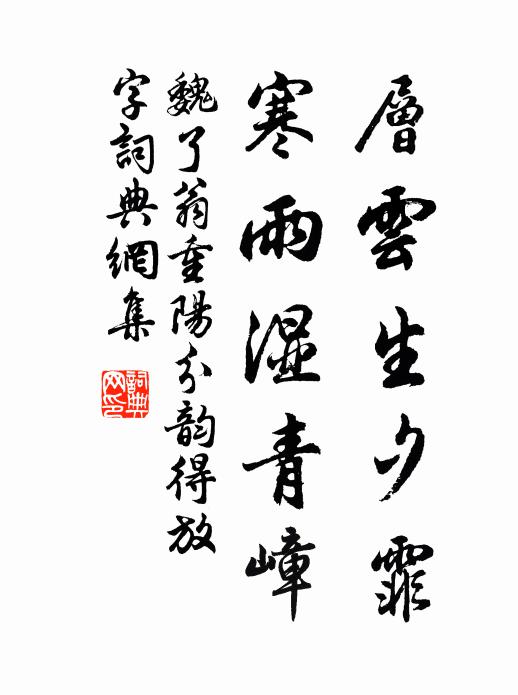 層雲生夕霏
寒雨湿青嶂
魏了翁重陽分韵得放
字詞典網集
詞典
网印